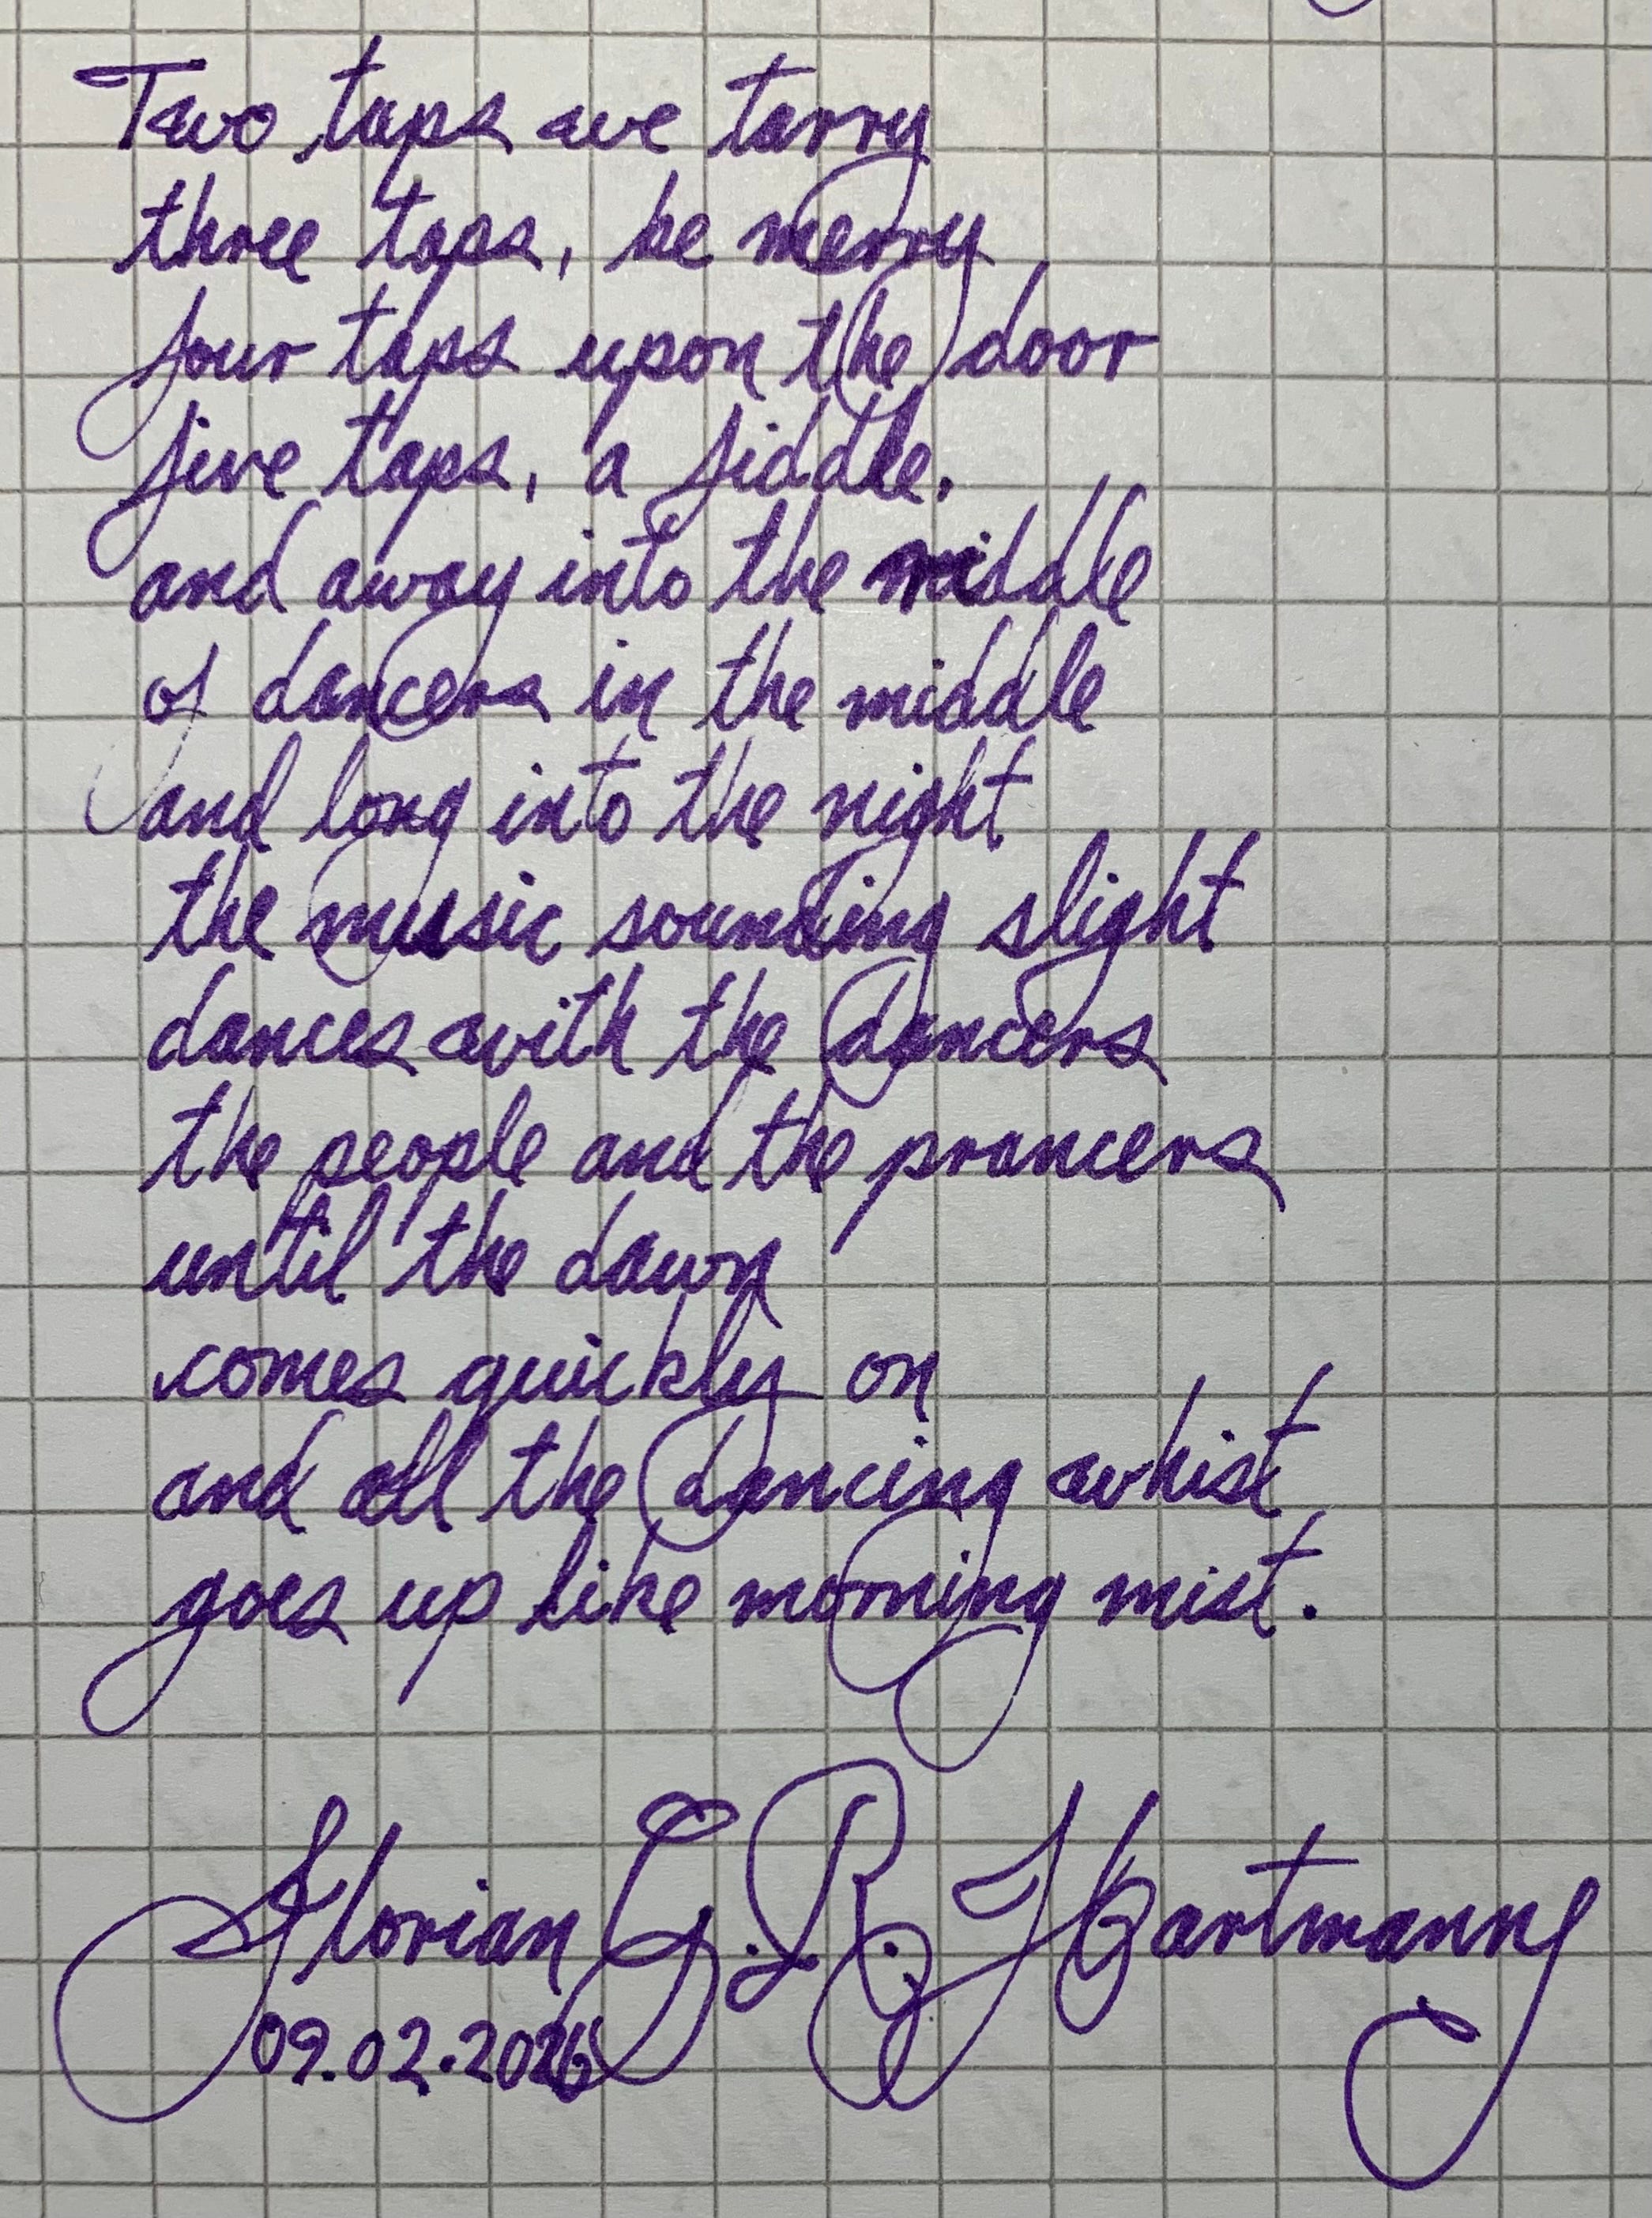 Two taps we tarry
three taps, be merry
four taps upon the door
five taps, a fiddle.
and away into the middle
of dancers in the middle
and long into the night
the music sounding slight
dances with the dancers
the people and the prancers
until the dawn
comes quickly on
and all the dancing whist
goes up like morning mist.
Florian G. R. Hartmann
09.02.2026